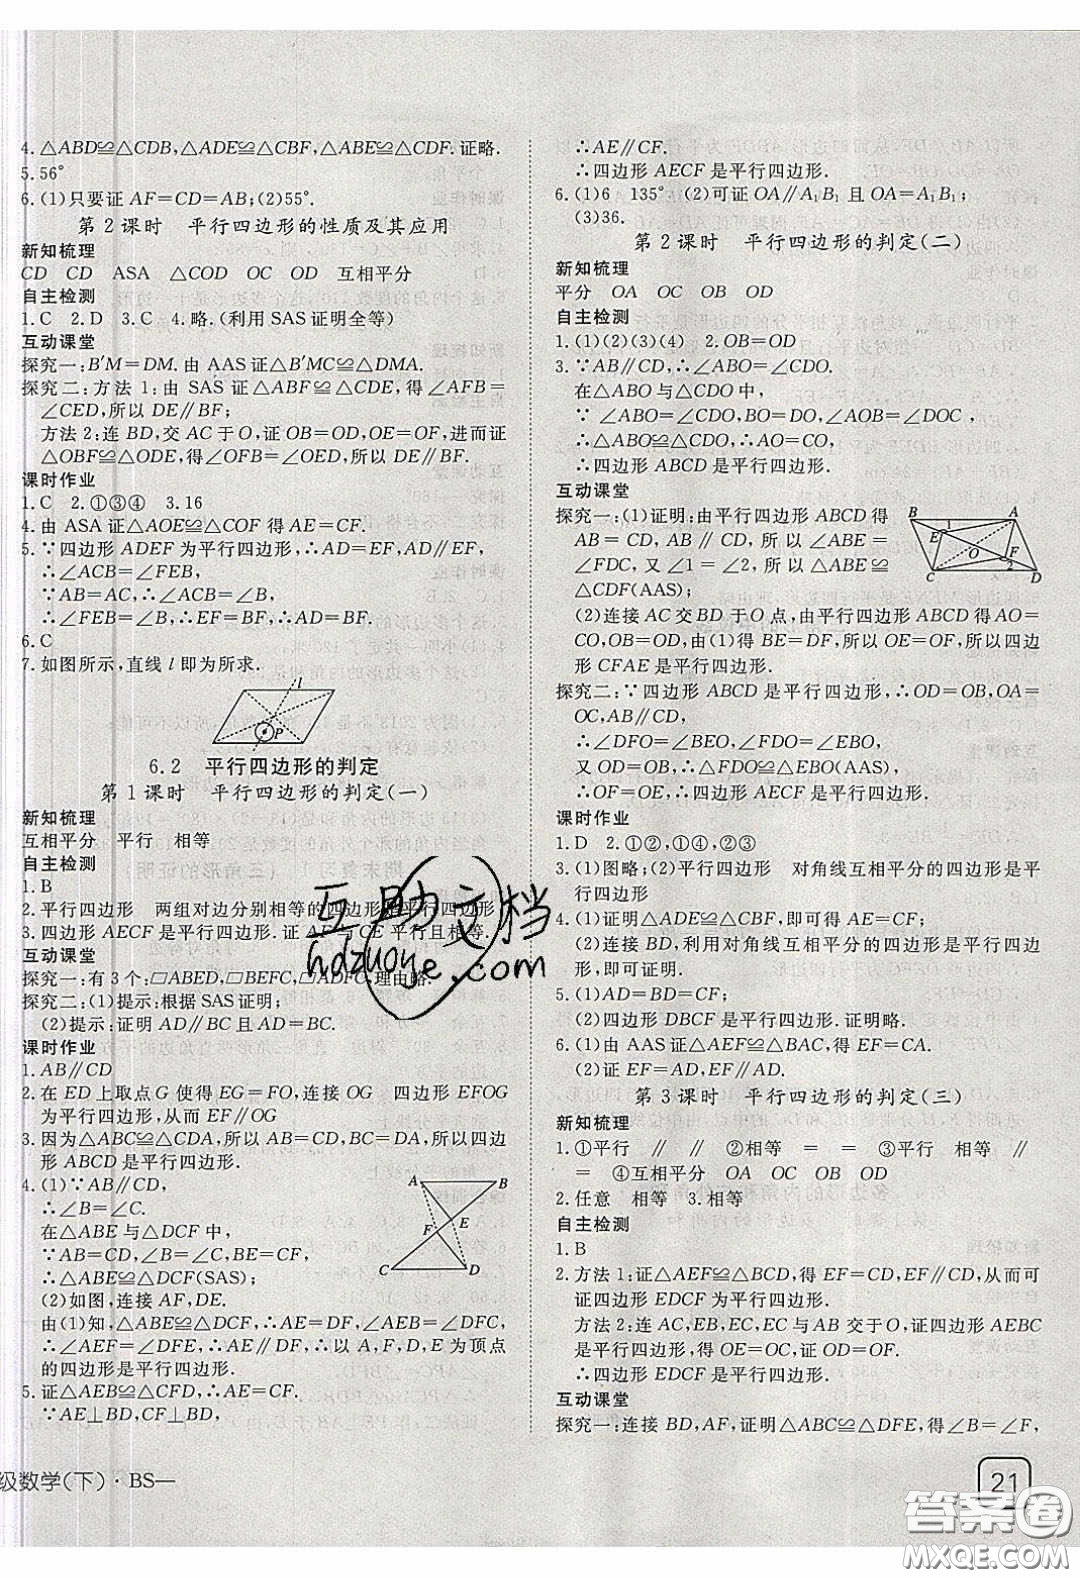 4.△ABD≌△CDB,△ADE≌△CBF,△ABE≌△CDF.证略.
5.56°
6.(1)只要证 AF=CD=AB;(2)55°.
第 2 课时　平行四边形的性质及其应用
新知梳理
CD　CD　ASA　△COD　OC　OD　互相平分
自主检测
1.C　2.D　3.C　4.略.(利用 SAS 证明全等)
互动课堂
探究一:B′M=DM.由 AAS 证△B′MC≌△DMA.
探究二:方法 1:由 SAS 证△ABF≌△CDE,得∠AFB=
∠CED,所以 DE∥BF;
方法 2:连 BD,交 AC 于 O,证 OB=OD,OE=OF,进而证
△OBF≌△ODE,得∠OFB=∠OED,所以 DE∥BF.
课时作业
1.C　2.①③④　3.16
4.由 ASA 证△AOE≌△COF 得 AE=CF.
5.∵四边形 ADEF 为平行四边形,∴AD=EF,AD∥EF,
∴∠ACB=∠FEB,
∵AB=AC,∴∠ABC=∠ACB,
∴∠FEB=∠ABC,∴EF=BF,∴AD=BF.
6.C
7.如图所示,直线 l 即为所求.
l
P
6.2　平行四边形的判定
第 1 课时　平行四边形的判定(一)
新知梳理
互相平分　平行　相等
自主检测
1.B
2.平行四边形　两组对边分别相等的四边形是平行四边形
3.四边形 AECF 是平行四边形.证 AF 与 CE 平行且相等.
互动课堂
探究一:有 3 个:□ABED,□BEFC,□ADFC,理由略.
探究二:(1)提示:根据 SAS 证明;
(2)提示:证明 AD∥BC 且 AD=BC.
课时作业
1.AB∥CD
2.在 ED 上取点 G 使得 EG=FO,连接 OG　四边形 EFOG
为平行四边形,从而 EF∥OG
3.因为△ABC≌△CDA,所以 AB=CD,BC=DA,所以四边
形 ABCD 是平行四边形.
4.(1)∵AB∥CD,
∴∠B=∠C.
在△ABE 与△DCF 中,
∵AB=CD,∠B=∠C,BE=CF,
∴△ABE≌△DCF(SAS).
(2)如图,连接 AF,DE.
由(1)知,△ABE≌△DCF,∴AE=DF,∠AEB=∠DFC,
∴∠AEF=∠DFE,∴AE∥DF,∴以 A、F、D、E 为顶点
的四边形是平行四边形.
A B
F E
C D
5.证△AEB≌△CFD,∴AE=CF.
∵AE⊥BD,CF⊥BD,
级数学(下)·BS—
∴AE∥CF.
∴四边形 AECF 是平行四边形.
6.(1)6　135°　(2)可证 OA∥A₁B₁ 且 OA=A₁B₁;
(3)36.
第 2 课时　平行四边形的判定(二)
新知梳理
平分　OA　OC　OB　OD
自主检测
1.(1)(2)(3)(4)　2.OB=OD
3.∵AB∥CD,∴∠ABO=∠CDO.
在△ABO 与△CDO 中,
∵∠ABO=∠CDO,BO=DO,∠AOB=∠DOC,
∴△ABO≌△CDO,∴AB=CD,
∴四边形 ABCD 是平行四边形.
互动课堂
探究一:(1)证明:由平行四边形 ABCD 得
AB=CD,AB∥CD,所以∠ABE=
∠FDC,又∠1=∠2,所以△ABE≌
△CDF(AAS);
B A
1
E
O
F
2
C D
(2)连接 AC 交 BD 于 O 点,由平行四边形 ABCD 得AO=
CO,OB=OD,由(1)得 BE=DF,所以 OE=OF,所以四边形
CFAE 是平行四边形.
探究二:∵四边形 ABCD 是平行四边形,∴OD=OB,OA=
OC,AB∥CD,
∴∠DFO=∠BEO,∠FDO=∠EBO,
又 OD=OB,∴△FDO≌△EBO(AAS),
∴OF=OE,∴四边形 AECF 是平行四边形.
课时作业
1.D　2.①②,①④,②③
3.(1)图略;(2)平行四边形　对角线互相平分的四边形是平
行四边形
4.(1)证明△ADE≌△CBF,即可得 AE=CF.
(2)连接 BD,利用对角线互相平分的四边形是平行四边
形,即可证明.
5.(1)AD=BD=CF;
(2)四边形 DBCF 是平行四边形.证明略.
6.(1)由 AAS 证△AEF≌△BAC,得 EF=CA.
(2)证 EF=AD,EF∥AD.
第 3 课时　平行四边形的判定(三)
新知梳理
1.①平行　∥　∥　②相等　=　=　③平行　相等　∥
=　④互相平分　OA　OC　OB　OD
2.任意　相等　3.相等
自主检测
1.B
2.方法 1:证△AEF≌△BCD,得 EF=CD,EF∥CD,从而可
证四边形 EDCF 为平行四边形.
方法 2:连 EC,EB,EC,EC 与 AB 交于 O,证四边形 AEBC
是平行四边形,得 OE=OC,证 OD=OF,
∴四边形 EDCF 是平行四边形.
互动课堂
探究一:连接 BD,AF,证明△ABC≌△DFE,得∠B=∠F,
21
互助文档
hdzuoye.com
答案圈
MXQE.COM